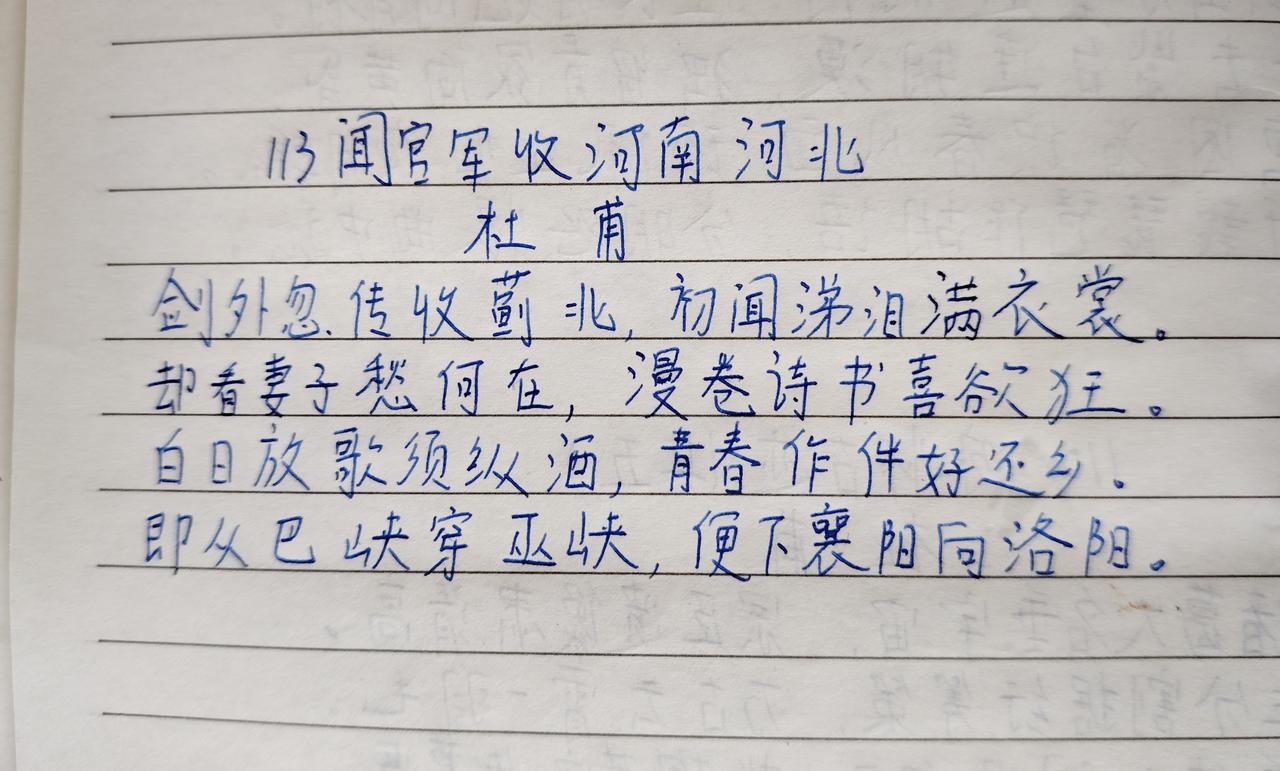 113闻官军收河南河北
杜甫
剑外忽传收蓟北,初闻涕泪满衣裳。
却看妻子愁何在,漫卷诗书喜欲狂。
白日放歌须纵酒,青春作伴好还乡。
即从巴峡穿巫峡,便下襄阳向洛阳。